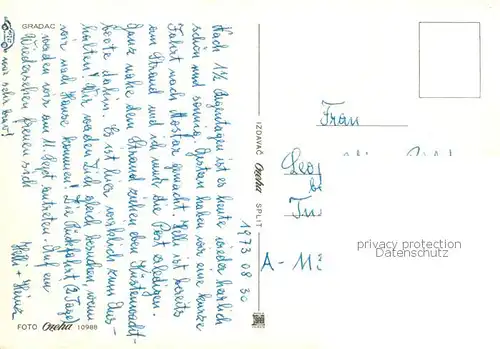 GRADAC
Nach 1½ Regentagen ist es heute wieder herrlich
schön und sonnig. Gestern haben wir eine kurze
Fahrt nach Mostar gemacht. Helli ist bereits
am Strand und ich muß die Post erledigen.
Ganz nahe dem Strand ziehen eben Küstenwacht-
boote dahin. Es ist hier wirklich zum Aus-
halten! Wir werden Dich gleich besuchen, wenn
wir nach Hause kommen! Die Rückfahrt (3 Tage)
werden wir am 11. Sept antreten. Auf ein
Wiedersehen freuen sich
Helli + Heinz
war sehr brav!
FOTO Ozeha 10988
IZDAVAČ Ozeha SPLIT
1973 08 30
Frau
A-
privacy protection
Datenschutz